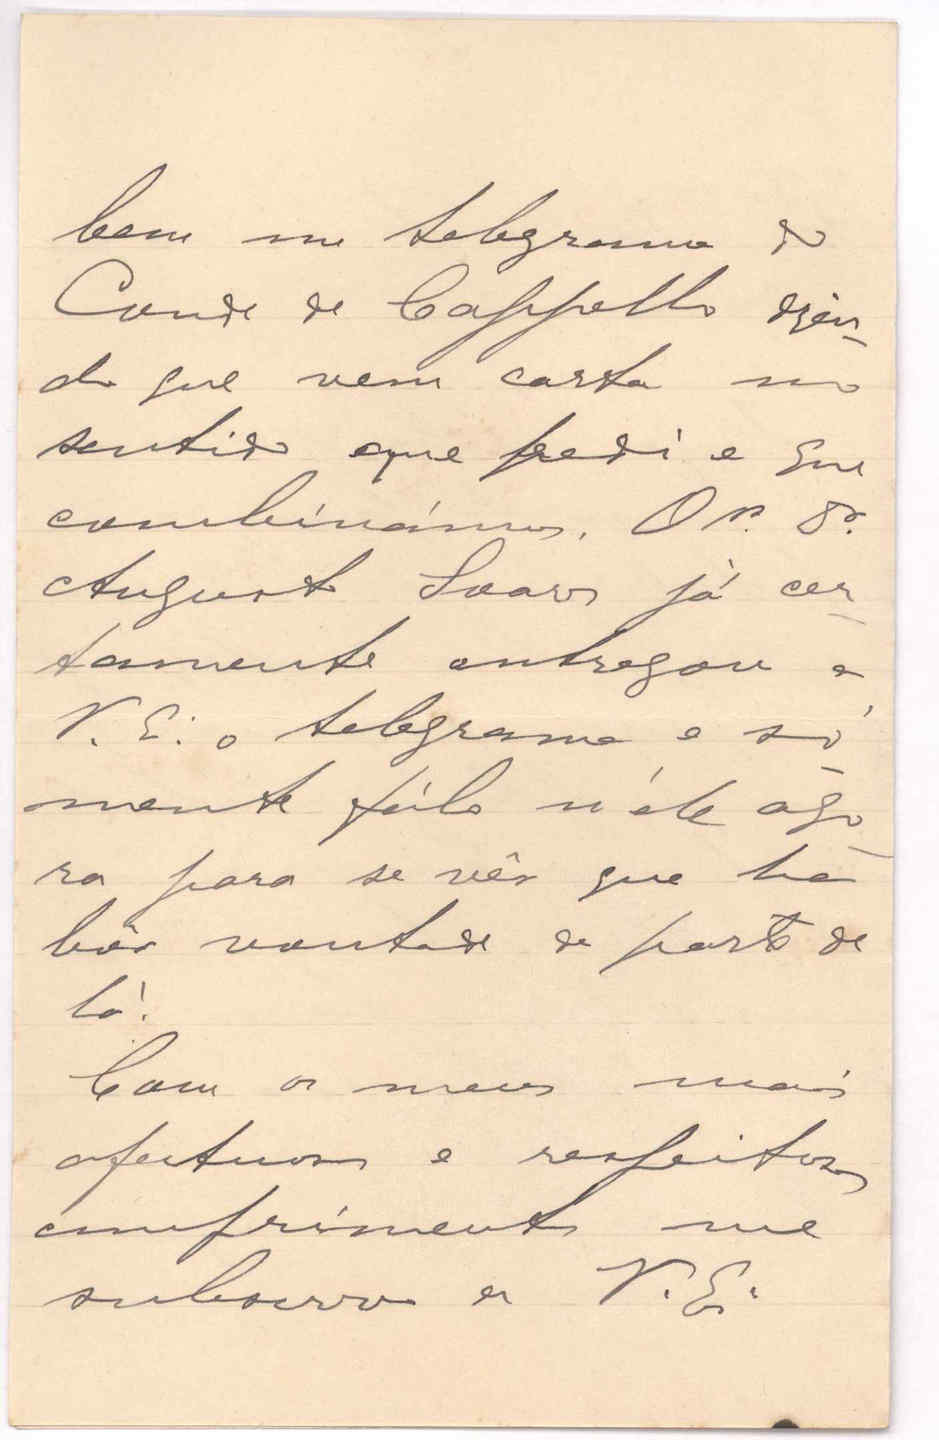 bem um telegrama do
Conde de Cappello dizen-
do que vem carta no
sentido que pedi e que
combinámos. O Sr. Dr.
Augusto Soares já cer-
tamente entregou a
V. E. o telegrama e só-
mente falo n'ele ago-
ra para se vêr que ha
bôa vontade da parte de
lá.
Com os meus mais
afectuosos e respeitosos
cumprimentos me
subscrevo de V. E.